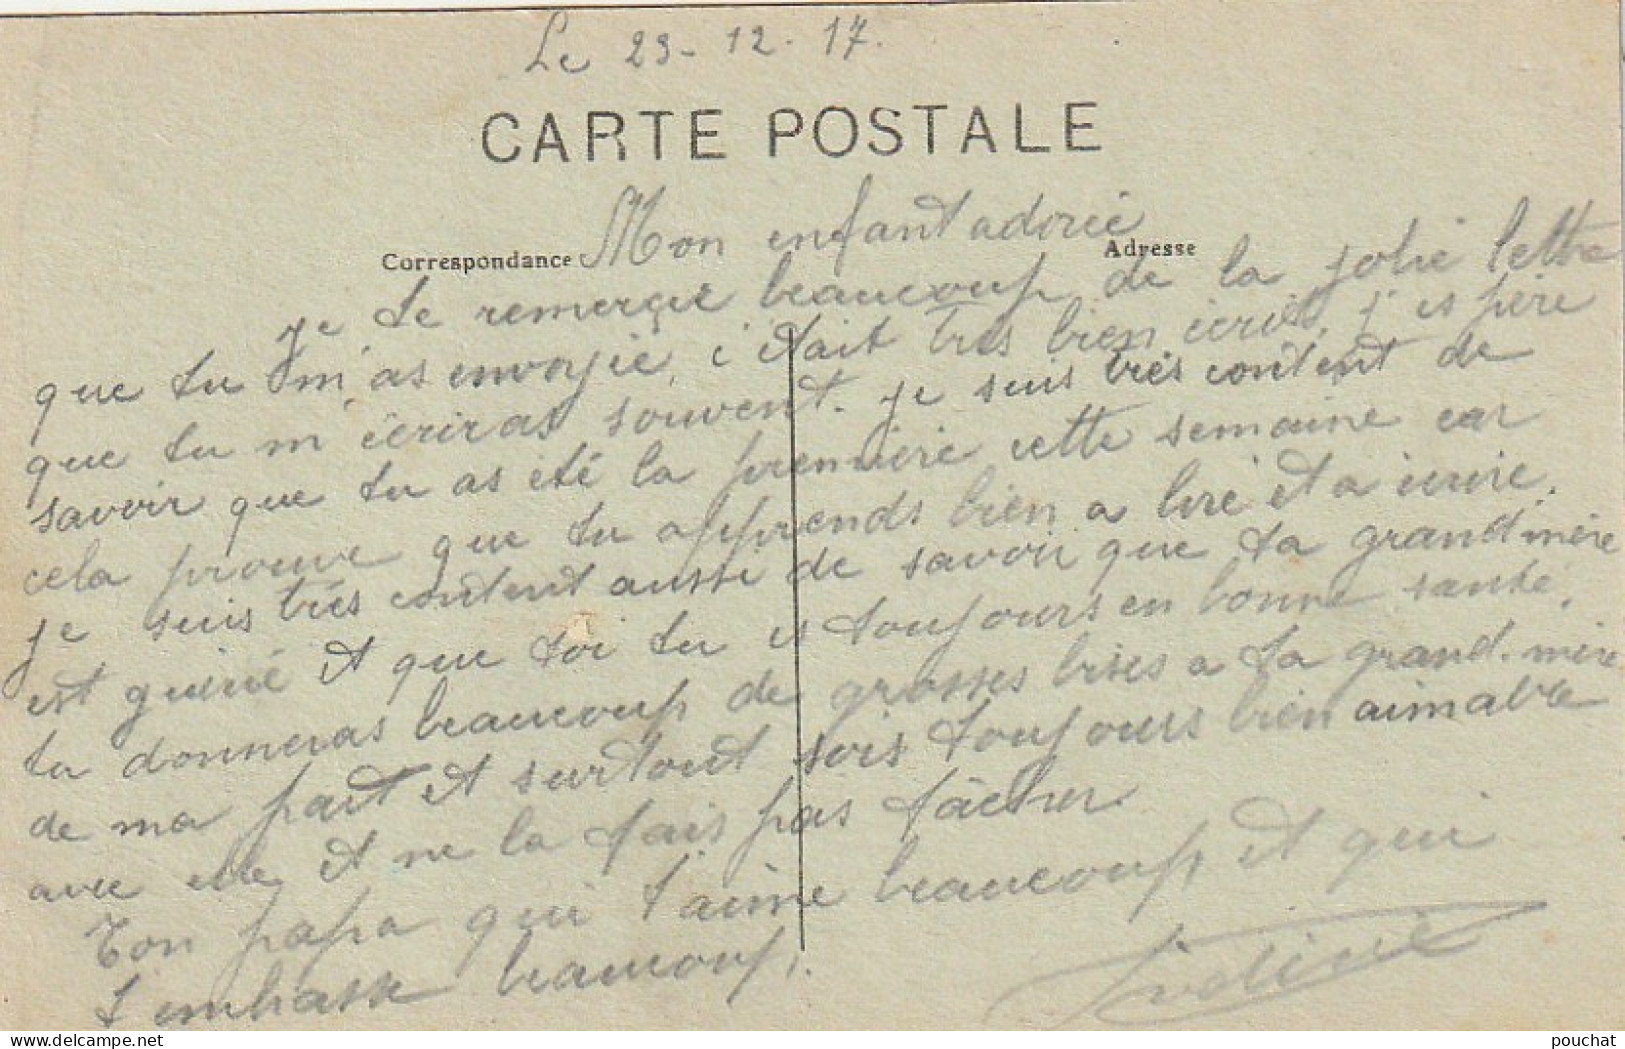 Le 23-12-17.
CARTE POSTALE
Correspondance
Adresse
Mon enfant adorée
je te remerçie beaucoup de la jolie lettre
que tu m'as envoyié, c'était très bien écrit, j'espère
que tu m'écriras souvent. je suis très content de
savoir que tu as été la première cette semaine car
cela prouve que tu apprends bien a lire et a écrire.
je suis très content aussi de savoir que ta grand'mère
est guérié et que toi tu es toujours en bonne santé.
tu donneras beaucoup de grosses bises a ta grand-mère
de ma part et surtout sois toujours bien aimable
avec elle et ne la fais pas fâcher.
Ton papa qui t'aime beaucoup et qui
t'embrasse beaucoup.
pouchat